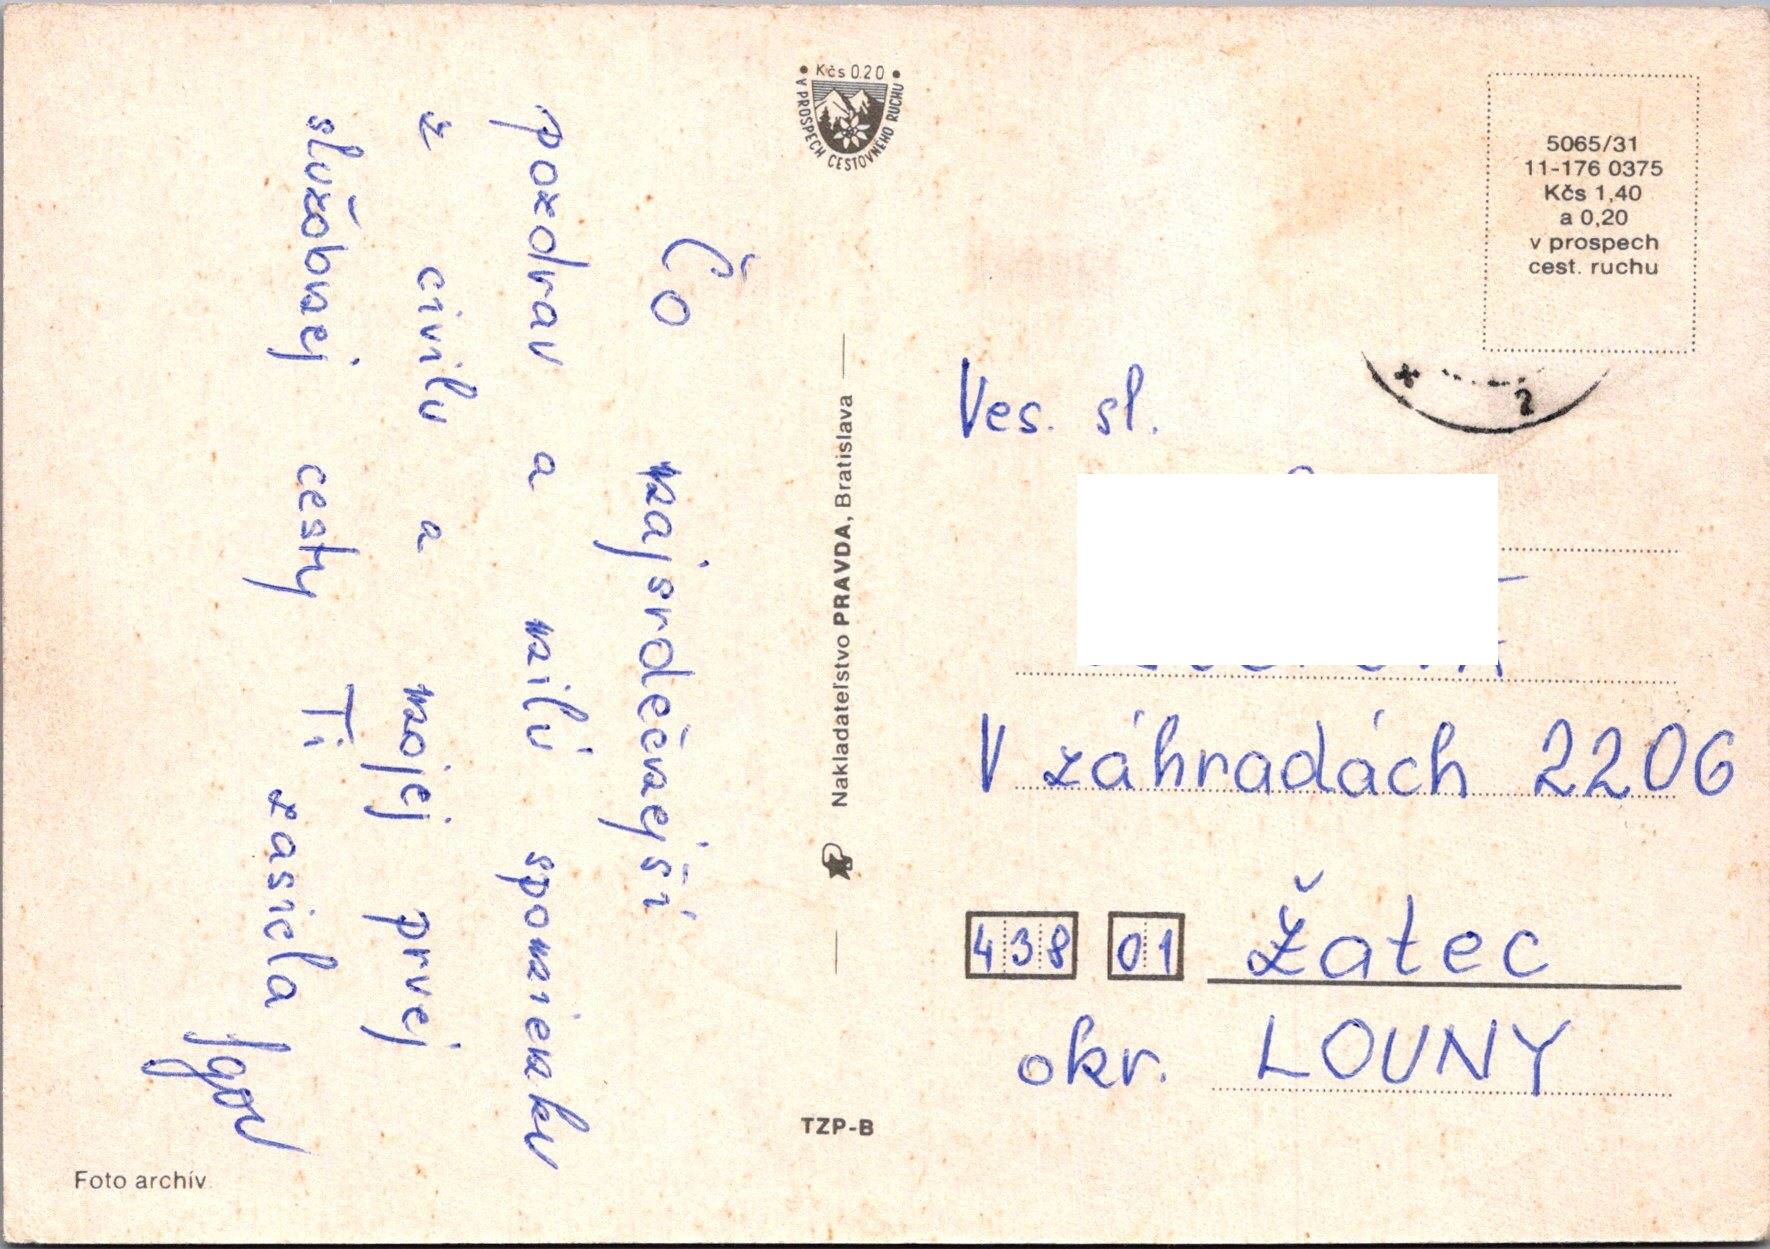 Čo najsrdečnejší
pozdrav a milú spomienku
z civilu a mojej prvej
služobnej cesty Ti
zasiela Igor
Foto archív
• Kčs 0.20 •
V PROSPECH CESTOVNÉHO RUCHU
Nakladateľstvo PRAVDA, Bratislava
TZP-B
5065/31
11-176 0375
Kčs 1,40
a 0,20
v prospech
cest. ruchu
2
Ves. sl.
V záhradách 2206
438 01 Žatec
okr. LOUNY